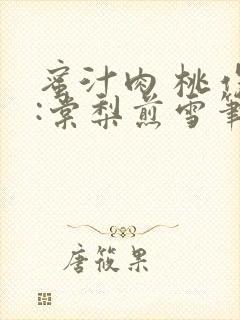 蜜汁肉桃作
:棠梨煎雪笔
唐筱果